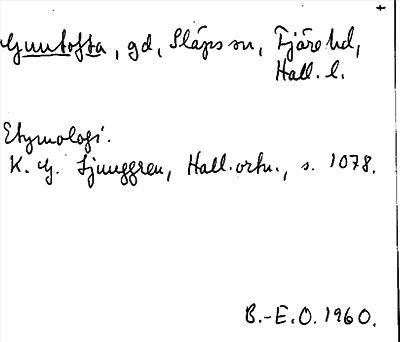 Guntofta, gd, Släps sn, Fjäre hd,
Hall. l.
Etymologi.
K. G. Ljunggren, Hall. ortn., s. 1078.
B.-E.O. 1960.